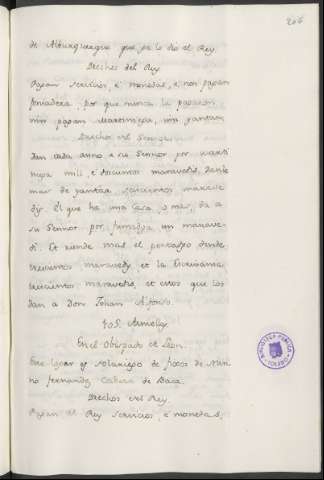 206
de Alburquerque que se lo dio el Rey
Derechos del Rey
Pagan servicios, e monedas, e non pagan
fonsadera, por que nunca la pagaron,
nin pagan Martiniega, nin yantar
Derechos del Sennor
Dan cada anno a su Sennor por marti
niega mill, e docientos maravedis, danle
mas de yantar seiscientos marave
dis. El que ha una Casa o mas, da a
su Sennor por fumadga un marave-
di. Et riende mas el portadgo dende
trecientos maravedis et la Escrivania
trecientos maravedis, et estos que los
dan a Don Johan Alfonso.
En el Obispado de Leon.
Este logar es solariego de fijos de
no Fernandez Cabeza de Baca.
Derechos del Rey.
Pagan al Rey servicios, e monedas,
BIBLIOTECA PUBLICA
TOLEDO